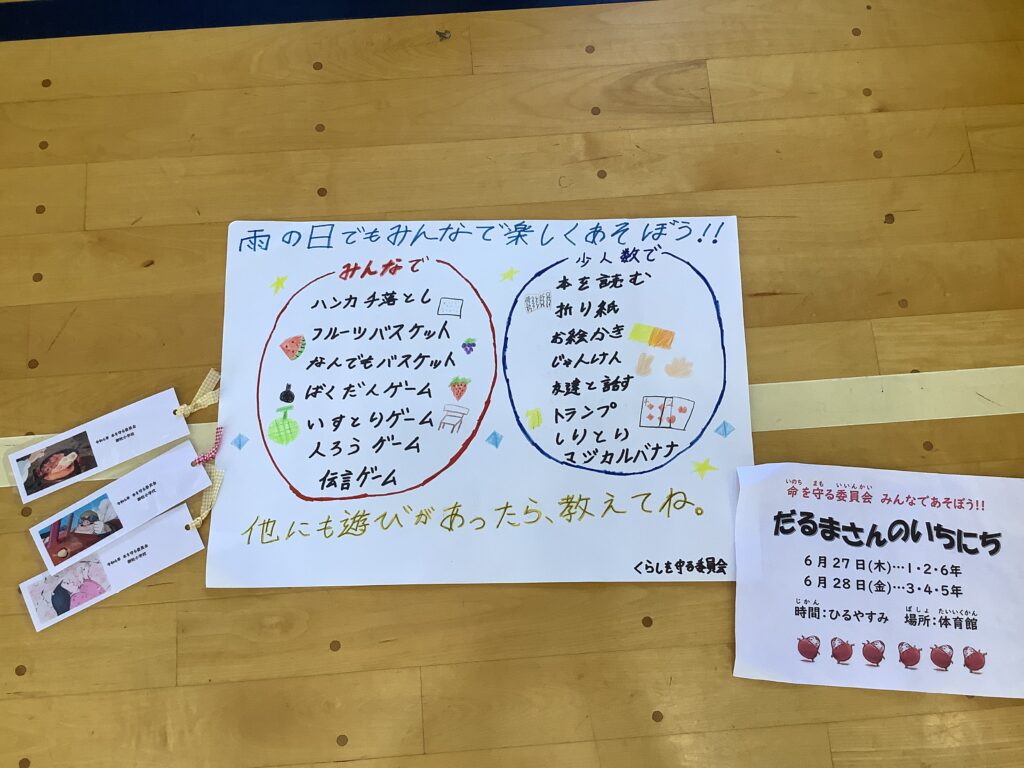 雨の日でもみんなで楽しくあそぼう!!
みんなで
ハンカチ落とし
フルーツバスケット
なんでもバスケット
ばくだんゲーム
いすとりゲーム
人ろうゲーム
伝言ゲーム
少人数で
本を読む
折り紙
お絵かき
じゃんけん
友達と話す
トランプ
しりとり
マジカルバナナ
他にも遊びがあったら、教えてね。
くらしを守る委員会
いのち まも いいんかい
命を守る委員会 みんなであそぼう!!
だるまさんのいちにち
6月27日(木)…1・2・6年
6月28日(金)…3・4・5年
じかん ばしょ たいいくかん
時間:ひるやすみ 場所:体育館